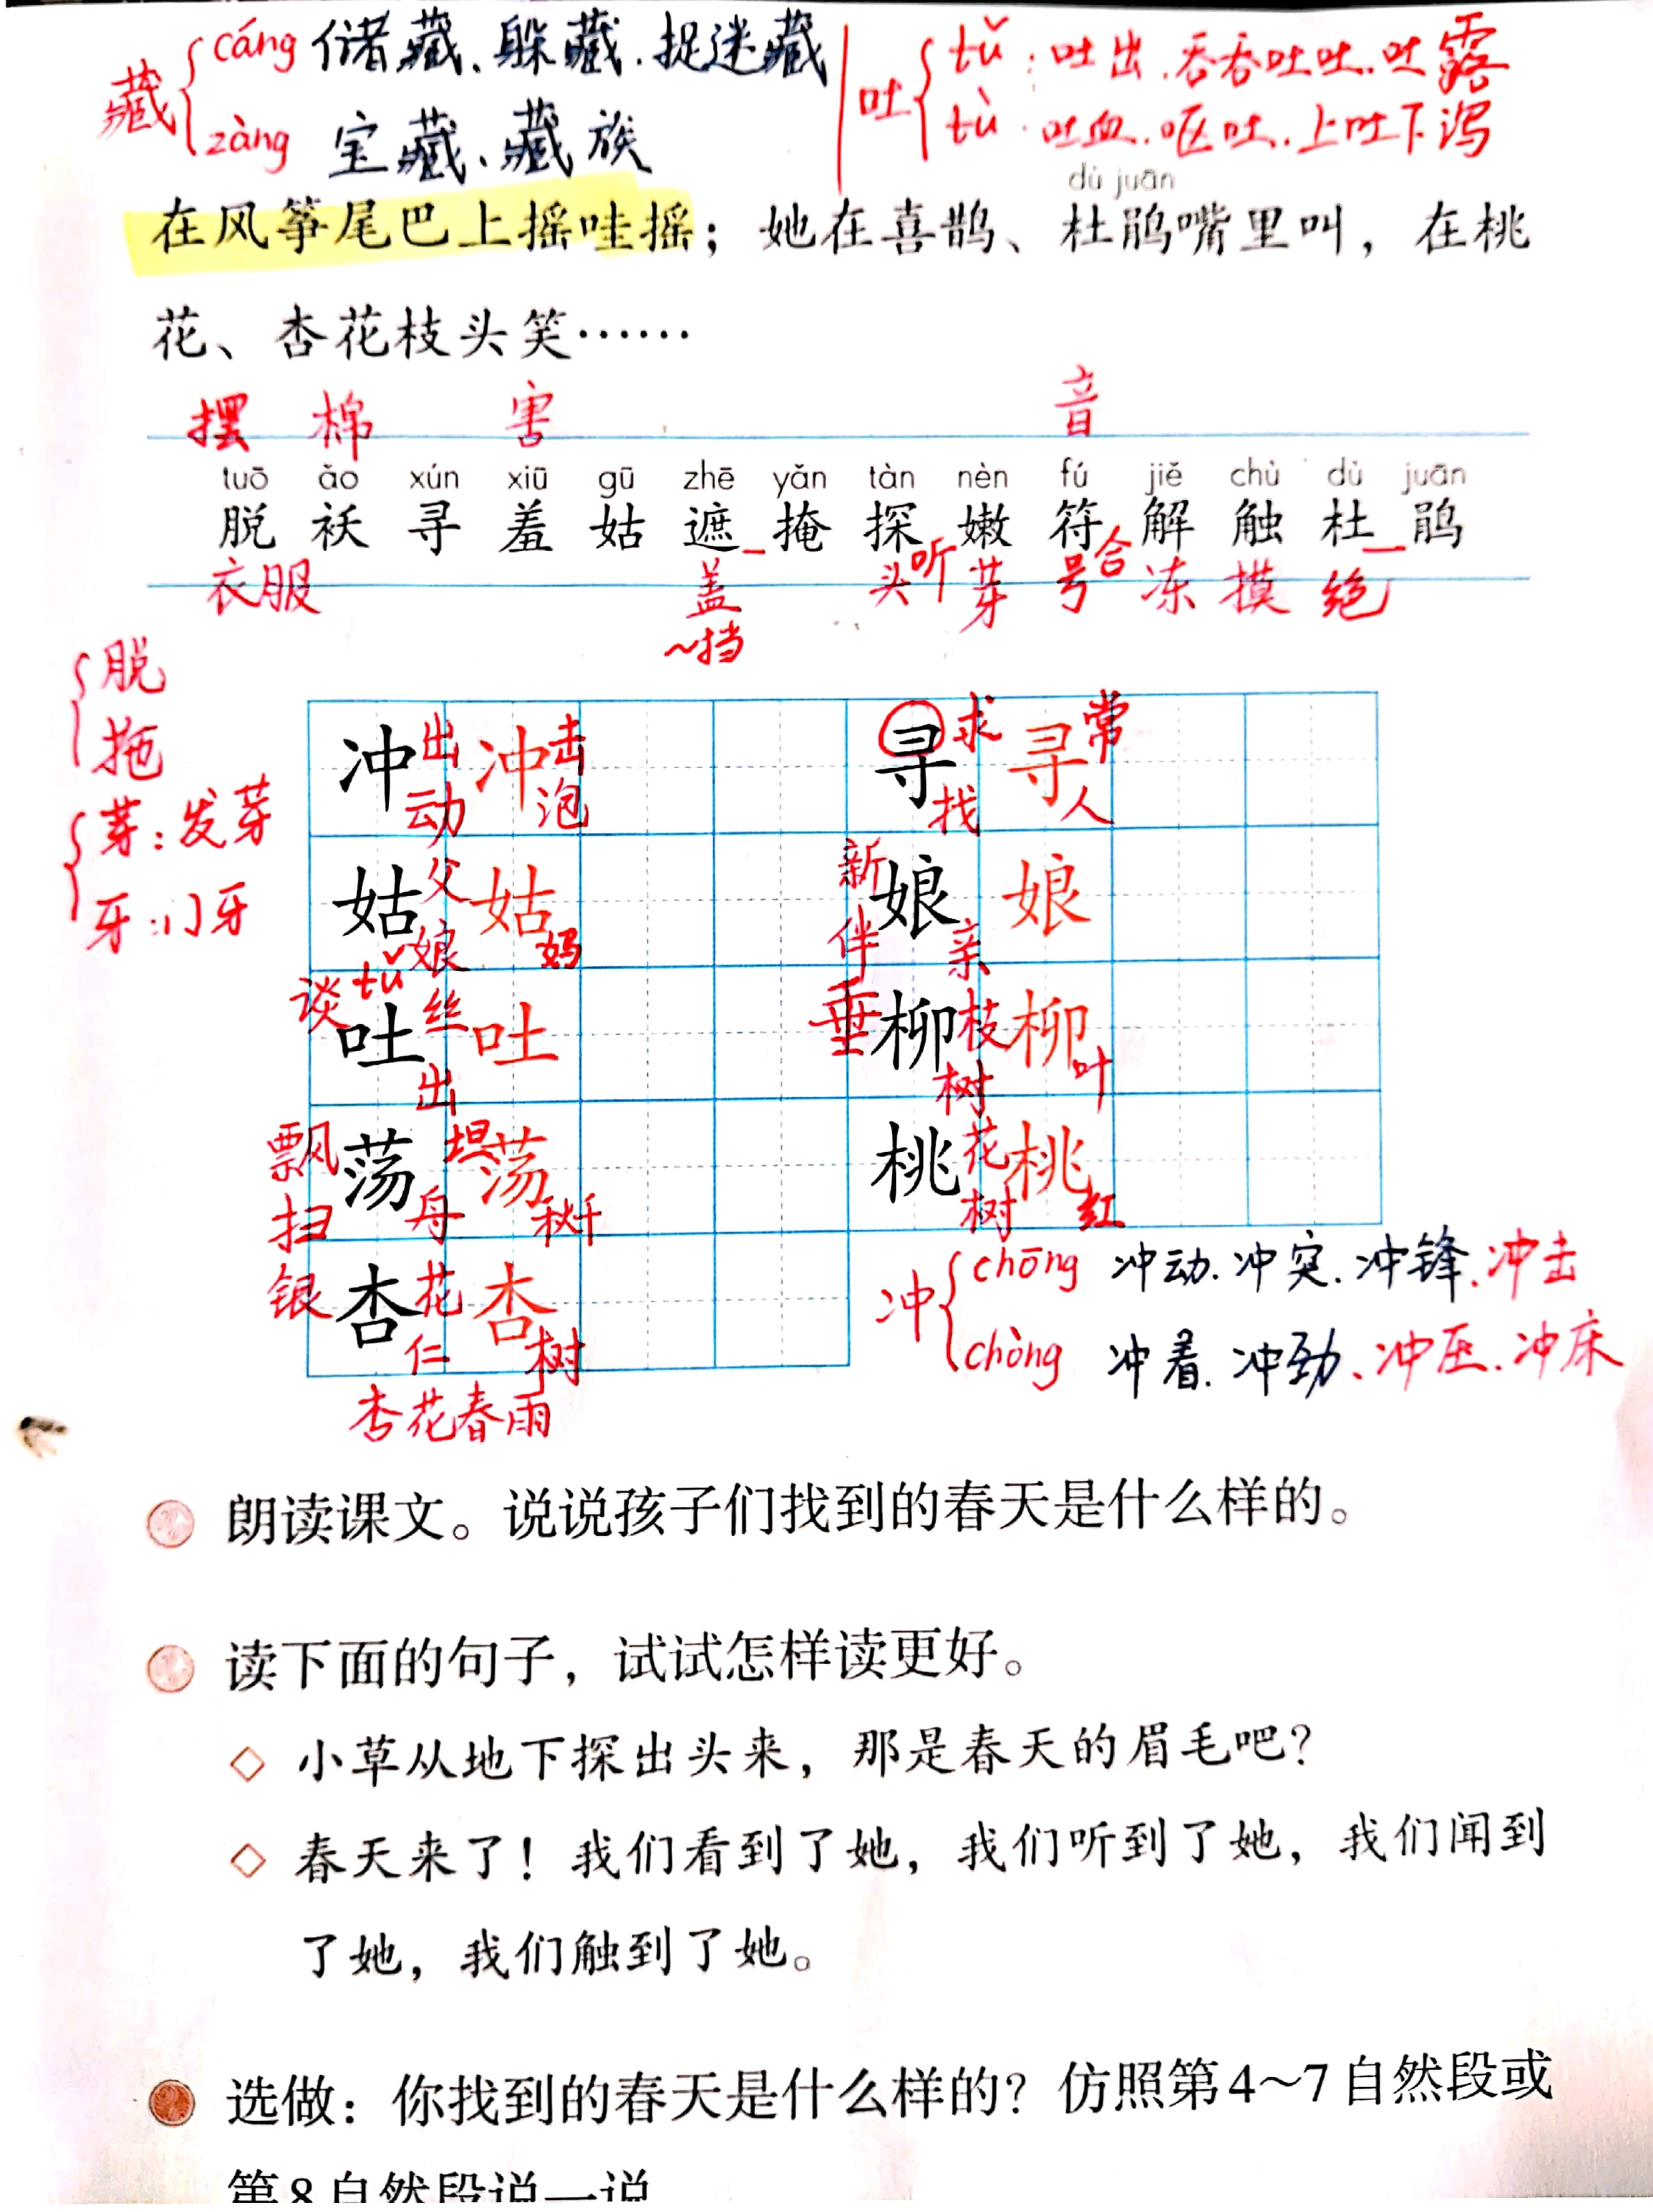 藏 cáng 储藏、躲藏、捉迷藏
zàng 宝藏、藏族
吐 tǔ：吐出、吞吞吐吐、吐露
tù：吐血、呕吐、上吐下泻
dù juān
在风筝尾巴上摇哇摇；她在喜鹊、杜鹃嘴里叫，在桃
花、杏花枝头笑……
摆 棉 害 音
tuō ǎo xún xiū gū zhē yǎn tàn nèn fú jiě chù dù juān
脱 袄 寻 羞 姑 遮 掩 探 嫩 符 解 触 杜 鹃
衣服 盖 头 听 芽 号 合 冻 摸 绝
~挡
脱
拖
芽：发芽
牙：门牙
冲 出 冲 击 寻 求 寻 常
动 泡 找 人
姑 父 姑 新 娘 娘
娘 妈 伴 亲
谈 tǔ 吐 丝 吐 垂 柳 枝 柳
出 树 叶
飘 荡 坦 荡 桃 花 桃
扫 舟 秋千 树 红
银 杏 花 杏
仁 树
杏花春雨
冲 chōng 冲动、冲突、冲锋、冲击
chòng 冲着、冲劲、冲压、冲床
朗读课文。说说孩子们找到的春天是什么样的。
读下面的句子，试试怎样读更好。
◇ 小草从地下探出头来，那是春天的眉毛吧？
◇ 春天来了！我们看到了她，我们听到了她，我们闻到
了她，我们触到了她。
选做：你找到的春天是什么样的？仿照第4～7自然段或
第8自然段说一说